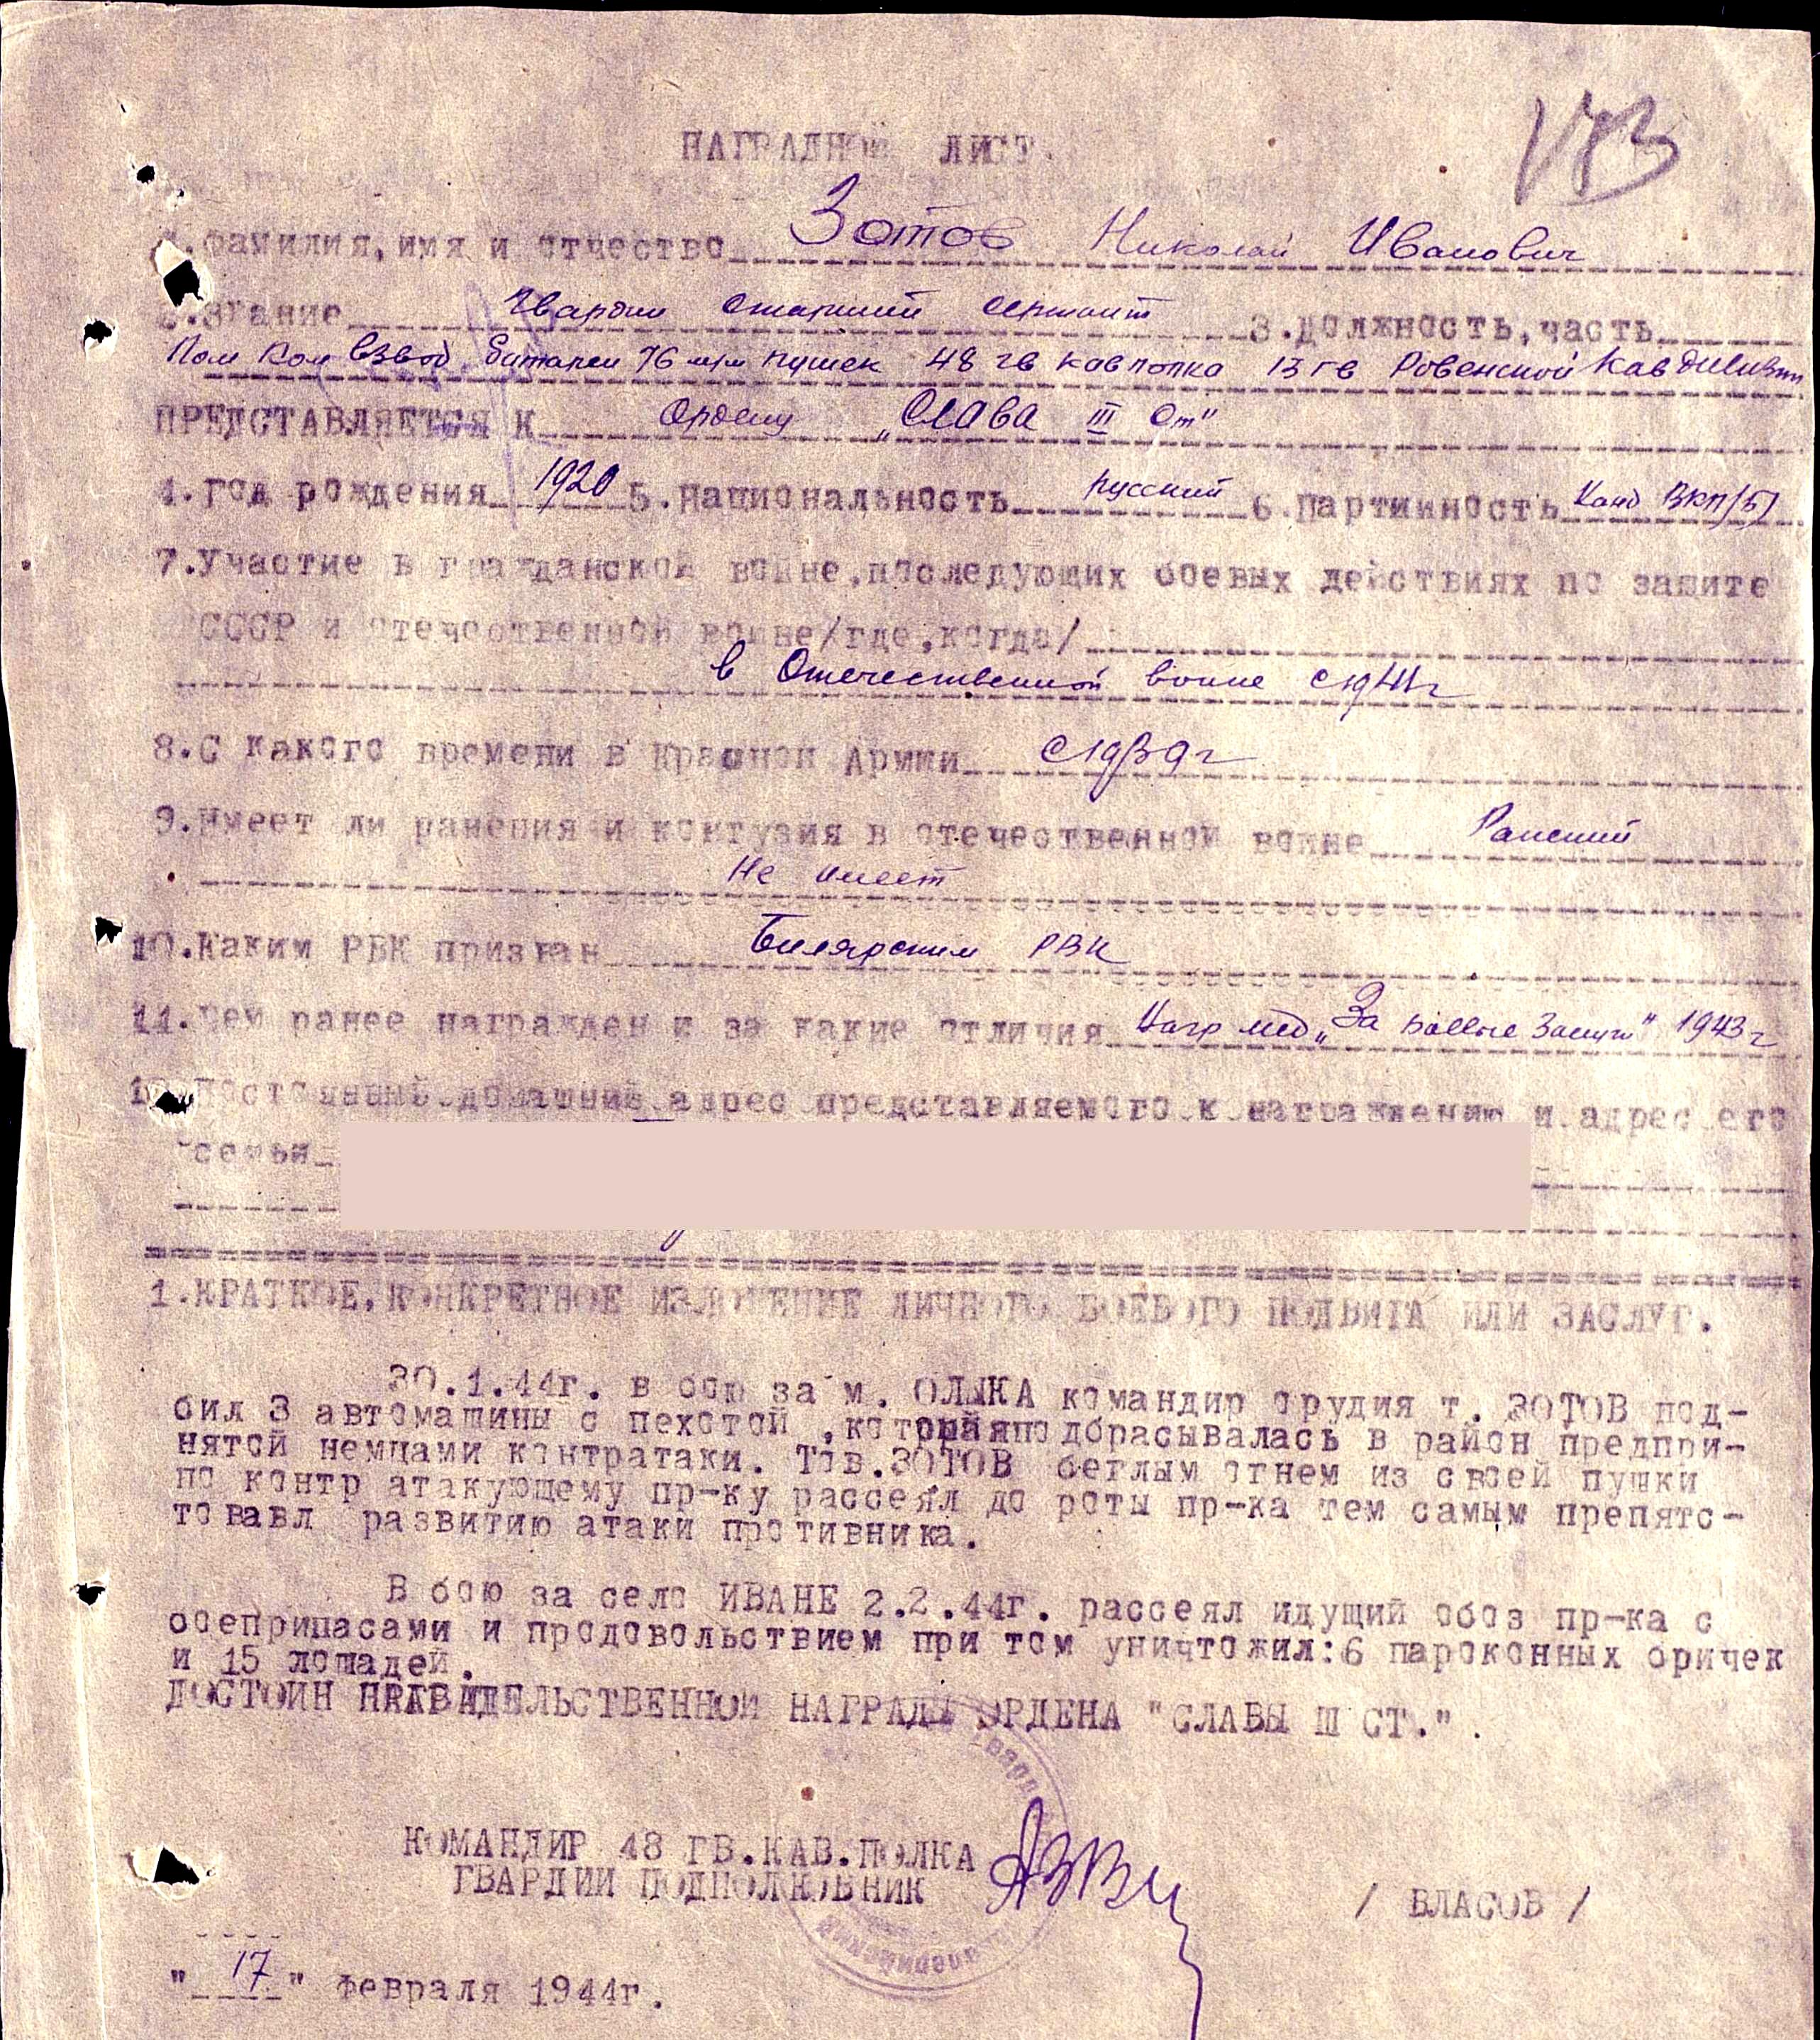 173
НАГРАДНОЙ ЛИСТ.
1.Фамилия,имя и отчество Зотов Николай Иванович
2.Звание Гвардии старший сержант 3.Должность,часть
Пом Ком взвод батареи 76 м/м пушек 48 гв кавполка 13 гв Ровенской Кав дивизии
ПРЕДСТАВЛЯЕТСЯ К Ордену „Слава III ст"
4.Год рождения 1920 5.Национальность русский 6.Партийность Канд ВКП/б/
7.Участие в гражданской войне,последующих боевых действиях по защите
СССР и отечественной войне/где,когда/
в Отечественной войне с 1941г
8.С какого времени в Красной Армии с 1939г
9.Имеет ли ранения и контузия в отечественной войне Ранений
Не имеет
10.Каким РВК призван Билярским РВК
11.Чем ранее награжден и за какие отличия Нагр мед „За боевые заслуги" 1943г
12.Постоянный домашний адрес представляемого к награждению и адрес его
семьи
1.КРАТКОЕ,КОНКРЕТНОЕ ИЗЛОЖЕНИЕ ЛИЧНОГО БОЕВОГО ПОДВИГА ИЛИ ЗАСЛУГ.
30.1.44г. в бою за м. ОЛЫКА командир орудия т. ЗОТОВ под-
бил 3 автомашины с пехотой ,которая подбрасывалась в район предпри-
нятой немцами контратаки. Тов.ЗОТОВ беглым огнем из своей пушки
по контр атакующему пр-ку рассеял до роты пр-ка тем самым препятс-
товавл развитию атаки противника.
В бою за село ИВАНЕ 2.2.44г. рассеял идущий обоз пр-ка с
боеприпасами и продовольствием при том уничтожил:6 пароконных бричек
и 15 лошадей.
ДОСТОИН ПРАВИТЕЛЬСТВЕННОЙ НАГРАДЫ ОРДЕНА "СЛАВЫ Ш СТ.".
КОМАНДИР 48 ГВ.КАВ.ПОЛКА
ГВАРДИИ ПОДПОЛКОВНИК / ВЛАСОВ /
" 17 " февраля 1944г.